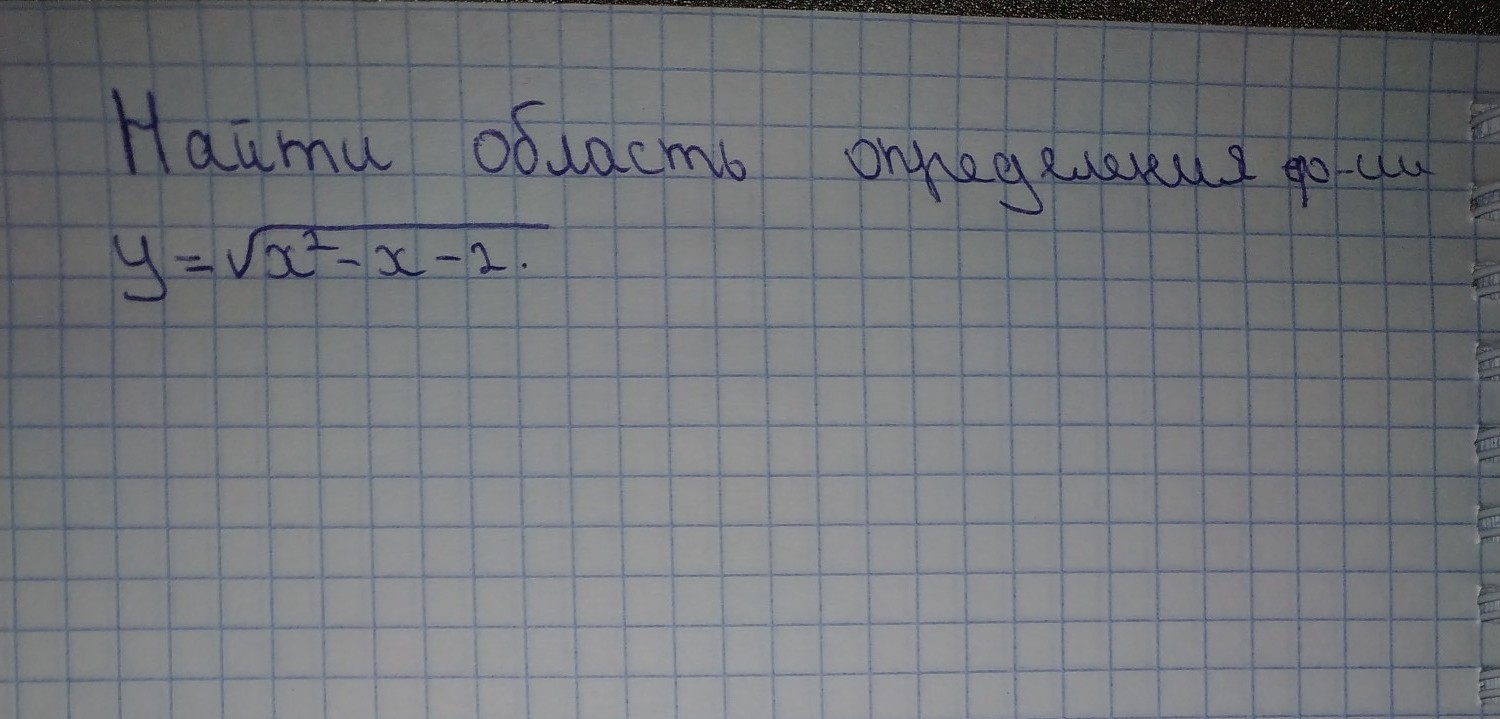 Найти область определения ф-ии
y = √x² - x - 2.